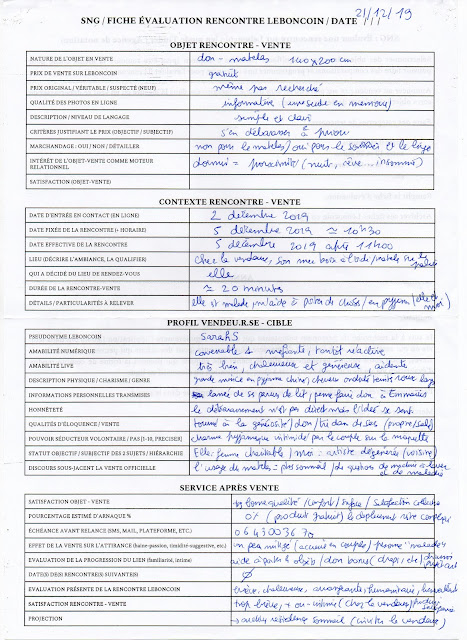 SNG / FICHE ÉVALUATION RENCONTRE LEBONCOIN / DATE 21/12/19
OBJET RENCONTRE - VENTE
NATURE DE L'OBJET EN VENTE don - matelas 140x200cm
PRIX DE VENTE SUR LEBONCOIN gratuit
PRIX ORIGINAL / VÉRITABLE / SUSPECTÉ (NEUF) même pas recherché
QUALITÉ DES PHOTOS EN LIGNE informative (une seule en mémoire)
DESCRIPTION / NIVEAU DE LANGAGE simple et clair
CRITÈRES JUSTIFIANT LE PRIX (OBJECTIF / SUBJECTIF) s'en débarasser à priori
MARCHANDAGE : OUI / NON / DÉTAILLER non pour le matelas / oui pour le et le linge
INTÉRÊT DE L'OBJET-VENTE COMME MOTEUR RELATIONNEL dormir = proximité (nuit, rêve... insomnie)
SATISFACTION (OBJET-VENTE)
CONTEXTE RENCONTRE - VENTE
DATE D'ENTRÉE EN CONTACT (EN LIGNE) 2 décembre 2019
DATE FIXÉE DE LA RENCONTRE (+ HORAIRE) 5 décembre 2019 ≃ 10h30
DATE EFFECTIVE DE LA RENCONTRE 5 décembre 2019 après 11h00
LIEU (DÉCRIRE L'AMBIANCE, LA QUALIFIER) chez la vendeuse, son mec boit à / matelas sur le palier
QUI A DÉCIDÉ DU LIEU DE RENDEZ-VOUS elle
DURÉE DE LA RENCONTRE-VENTE ≃ 20 minutes
DÉTAILS / PARTICULARITÉS À RELEVER elle est malade / m'aide à porter des choses / en pyjama (elle et moi)
PROFIL VENDEUR.R.SE - CIBLE
PSEUDONYME LEBONCOIN SarahS
AMABILITÉ NUMÉRIQUE convenable & méfiante, tantôt réactive
AMABILITÉ LIVE très bien, chaleureuse et généreuse, aidante
DESCRIPTION PHYSIQUE / CHARISME / GENRE grande mince en pyjama clair, cheveux ondulés teints roux
INFORMATIONS PERSONNELLES TRANSMISES de ses parures de lit, pense faire don à Emmaüs
HONNÊTETÉ le débarassement n'est pas direct mais l'idée se sent
QUALITÉS D'ÉLOQUENCE / VENTE tourné à la générosité / don / très dans de ses (propre/sale)
POUVOIR SÉDUCTEUR VOLONTAIRE / PAS (1-10, PRÉCISER) charme hypnotique intimidé par le couple sur la moquette
STATUT OBJECTIF / SUBJECTIF DES 2 SUJETS / HIÉRARCHIE Elle: femme charitable / moi = artiste dégénérée / (voisine)
DISCOURS SOUS-JACENT LA VENTE OFFICIELLE l'usage du matelas = plus sommeil /
SERVICE APRÈS VENTE
SATISFACTION OBJET - VENTE bonne qualité / confort / / Satisfaction
POURCENTAGE ESTIMÉ D'ARNAQUE % 0% (produit gratuit) le déplacement
ÉCHÉANCE AVANT RELANCE (SMS, MAIL, PLATEFORME, ETC.)
EFFET DE LA VENTE SUR L'ATTIRANCE (haine-passion, timidité-suggestive, etc) un peu mitigé (accueil en couple)
ÉVALUATION DE LA PROGRESSION DU LIEN (familiarité, intime) aide à porter le objets / don bonus (draps, etc)
DATE(S) DE(S) RENCONTRE(S) SUIVANTE(S) Ø
ÉVALUATION PRÉSENTE DE LA RENCONTRE LEBONCOIN brève, chaleureuse, arrangeante, humanitaire,
SATISFACTION RENCONTRE - VENTE trop brève, + ou - intime (chez le vendeur)
PROJECTION → sommeil (inviter le vendeur)